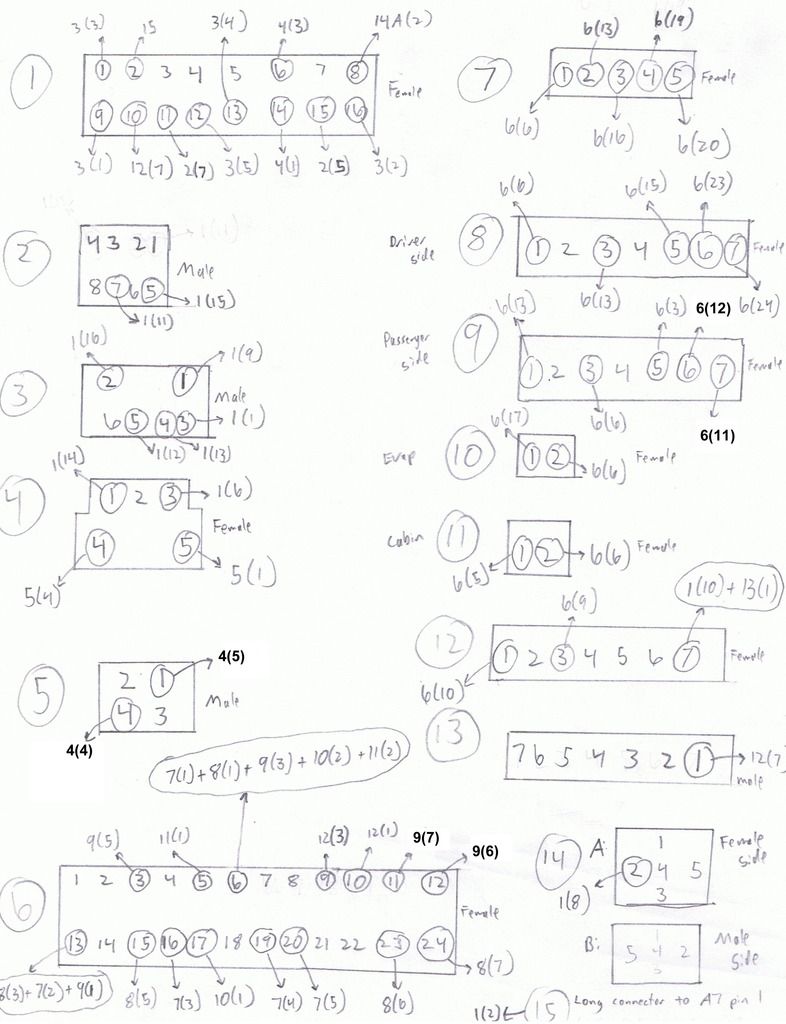 3(3) 15 3(4) 4(3) 14A(2)
1
1 2 3 4 5 6 7 8
Female
9 10 11 12 13 14 15 16
3(1) 12(7) 2(7) 3(5) 4(1) 2(5) 3(2)
2
4 3 2 1
Male
8 7 6 5
1(15)
1(11)
3
1(16) 1(9)
2 1
Male
6 5 4 3
1(1)
1(12) 1(13)
4
1(14)
1 2 3
1(6)
Female
4 5
5(4) 5(1)
5
4(5)
2 1
Male
4 3
4(4)
7(1)+8(1)+9(3)+10(2)+11(2)
6
9(5) 11(1) 12(3) 12(1) 9(7) 9(6)
1 2 3 4 5 6 7 8 9 10 11 12
Female
13 14 15 16 17 18 19 20 21 22 23 24
8(3)+7(2)+9(1) 8(5) 7(3) 10(1) 7(4) 7(5) 8(6) 8(7)
7
6(13) 6(19)
1 2 3 4 5
Female
6(6) 6(16) 6(20)
Driver
side
8
6(6) 6(15) 6(23)
1 2 3 4 5 6 7
Female
6(13) 6(24)
Passenger
side
9
6(13) 6(3) 6(12)
1 2 3 4 5 6 7
Female
6(6) 6(11)
Evap
10
6(17)
1 2
6(6)
Female
Cabin
11
1 2
6(5) 6(6)
Female
12
6(9) 1(10)+13(1)
1 2 3 4 5 6 7
Female
6(10)
13
7 6 5 4 3 2 1
12(7)
male
14
A:
1
2 4 5
3
Female
side
1(8)
B:
1
5 4 2
3
Male
side
1(2) 15 Long connector to A7 pin 1